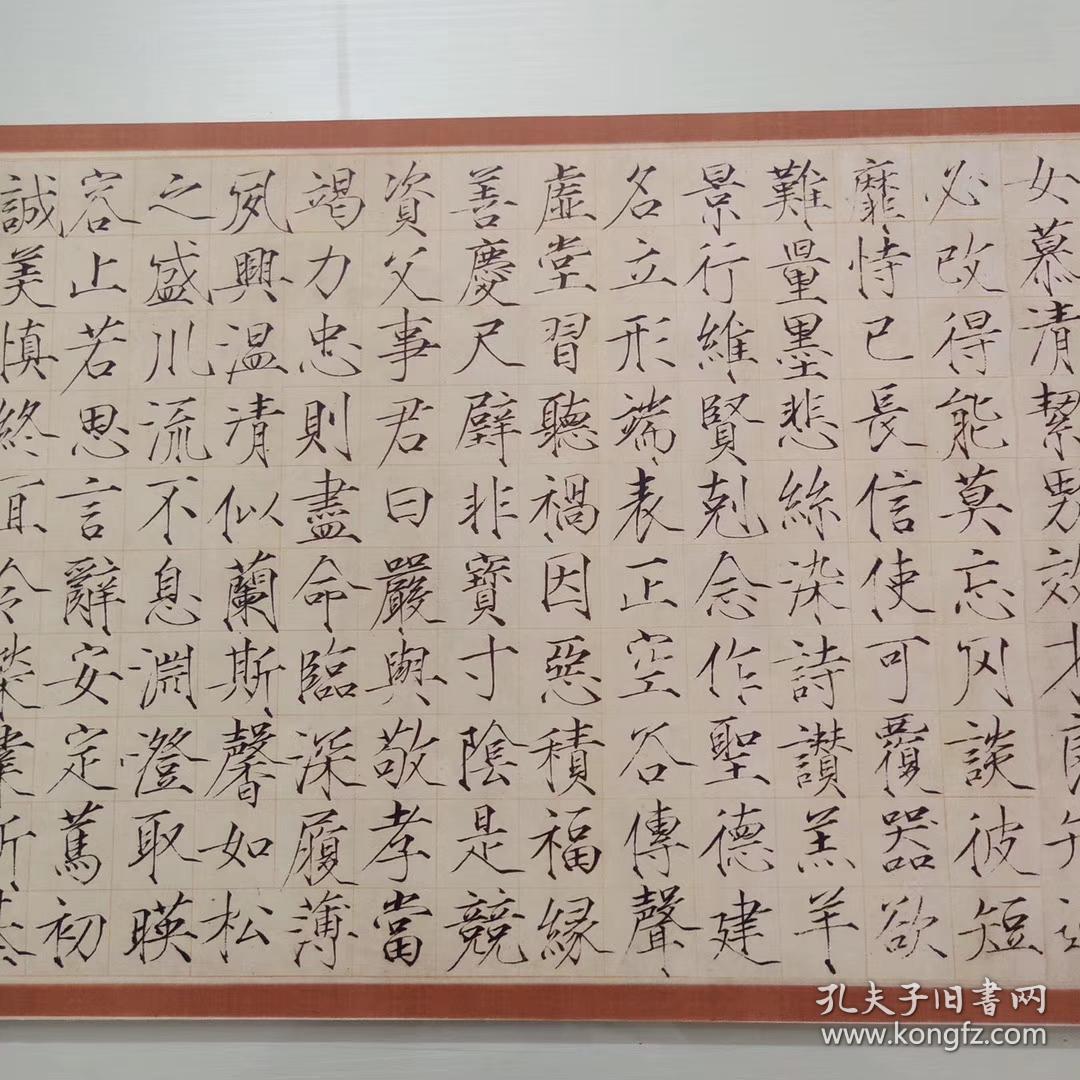 女慕清絜男效才良
必改得能莫忘罔談彼短
靡恃已長信使可覆器欲
難量墨悲絲染詩讃羔羊
景行維賢剋念作聖德建
名立形端表正空谷傳聲
虛堂習聽禍因惡積福緣
善慶尺璧非寶寸陰是競
資父事君曰嚴與敬孝當
竭力忠則盡命臨深履薄
夙興温清似蘭斯馨如松
之盛川流不息淵澄取暎
容止若思言辭安定篤初
誠美慎終宜令榮業所基
孔夫子旧书网
www.kongfz.com